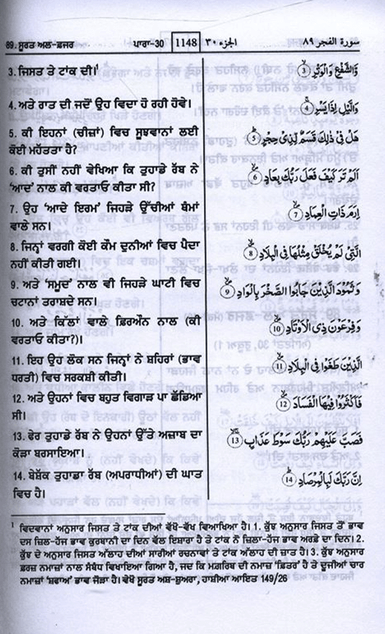 89. ਸੂਰਤ ਅਲ-ਫ਼ਜਰ ਪਾਰਾ-30 1148 الجزء ٣٠ سورة الفجر ٨٩
3. ਜਿਸਤ ਤੇ ਟਾਂਕ ਦੀ।¹
وَّالشَّفْعِ وَالْوَتْرِ ۝3
4. ਅਤੇ ਰਾਤ ਦੀ ਜਦੋਂ ਉਹ ਵਿਦਾ ਹੋ ਰਹੀ ਹੋਵੇ।
وَالَّيْلِ اِذَا يَسْرِ ۝4
5. ਕੀ ਇਹਨਾਂ (ਚੀਜ਼ਾਂ) ਵਿਚ ਸੂਝਵਾਨਾਂ ਲਈ
ਕੋਈ ਮਹੱਤਤਾ ਹੈ?
هَلْ فِيْ ذٰلِكَ قَسَمٌ لِّذِيْ حِجْرٍ ۝5
6. ਕੀ ਤੁਸੀਂ ਨਹੀਂ ਵੇਖਿਆ ਕਿ ਤੁਹਾਡੇ ਰੱਬ ਨੇ
'ਆਦ' ਨਾਲ ਕੀ ਵਰਤਾਓ ਕੀਤਾ ਸੀ?
اَلَمْ تَرَ كَيْفَ فَعَلَ رَبُّكَ بِعَادٍ ۝6
7. ਉਹ 'ਆਦੇ ਇਰਮ' ਜਿਹੜੇ ਉੱਚੀਆਂ ਥੰਮਾਂ
ਵਾਲੇ ਸਨ।
اِرَمَ ذَاتِ الْعِمَادِ ۝7
8. ਜਿਨ੍ਹਾਂ ਵਰਗੀ ਕੋਈ ਕੌਮ ਦੁਨੀਆਂ ਵਿਚ ਪੈਦਾ
ਨਹੀਂ ਕੀਤੀ ਗਈ।
الَّتِيْ لَمْ يُخْلَقْ مِثْلُهَا فِي الْبِلَادِ ۝8
9. ਅਤੇ 'ਸਮੂਦ' ਨਾਲ ਵੀ ਜਿਹੜੇ ਘਾਟੀ ਵਿਚ
ਚਟਾਨਾਂ ਤਰਾਸ਼ਦੇ ਸਨ।
وَثَمُوْدَ الَّذِيْنَ جَابُوا الصَّخْرَ بِالْوَادِ ۝9
10. ਅਤੇ ਕਿੱਲਾਂ ਵਾਲੇ ਫ਼ਿਰਔਨ ਨਾਲ (ਕੀ
ਵਰਤਾਓ ਕੀਤਾ?)।
وَفِرْعَوْنَ ذِي الْاَوْتَادِ ۝10
11. ਇਹ ਉਹ ਲੋਕ ਸਨ ਜਿਨ੍ਹਾਂ ਨੇ ਸ਼ਹਿਰਾਂ (ਭਾਵ
ਧਰਤੀ) ਵਿਚ ਸਰਕਸ਼ੀ ਕੀਤੀ।
الَّذِيْنَ طَغَوْا فِي الْبِلَادِ ۝11
12. ਅਤੇ ਉਹਨਾਂ ਵਿਚ ਬਹੁਤ ਵਿਗਾੜ ਪਾ ਛੱਡਿਆ
ਸੀ।
فَاَكْثَرُوْا فِيْهَا الْفَسَادَ ۝12
13. ਫੇਰ ਤੁਹਾਡੇ ਰੱਬ ਨੇ ਉਹਨਾਂ ਉੱਤੇ ਅਜ਼ਾਬ ਦਾ
ਕੋੜਾ ਬਰਸਾਇਆ।
فَصَبَّ عَلَيْهِمْ رَبُّكَ سَوْطَ عَذَابٍ ۝13
14. ਬੇਸ਼ੱਕ ਤੁਹਾਡਾ ਰੱਬ (ਅਪਰਾਧੀਆਂ) ਦੀ ਘਾਤ
ਵਿਚ ਹੈ।
اِنَّ رَبَّكَ لَبِالْمِرْصَادِ ۝14
¹ ਵਿਦਵਾਨਾਂ ਅਨੁਸਾਰ ਜਿਸਤ ਤੇ ਟਾਂਕ ਦੀਆਂ ਵੱਖੋ-ਵੱਖ ਵਿਆਖਿਆ ਹੈ। 1. ਕੁੱਝ ਅਨੁਸਾਰ ਜਿਸਤ ਤੋਂ ਭਾਵ
ਦਸ ਜ਼ਿਲ-ਹੱਜ ਭਾਵ ਕੁਰਬਾਨੀ ਦਾ ਦਿਨ ਵੱਲ ਇਸ਼ਾਰਾ ਹੈ ਤੇ ਟਾਂਕ ਨੌ ਜ਼ਿਲਾ-ਹੱਜ ਭਾਵ ਅਰਫ਼ੇ ਦਾ ਦਿਨ। 2.
ਕੁੱਝ ਦੇ ਅਨੁਸਾਰ ਜਿਸਤ ਅੱਲਾਹ ਦੀਆਂ ਸਾਰੀਆਂ ਰਚਨਾਵਾਂ ਤੇ ਟਾਂਕ ਅੱਲਾਹ ਦੀ ਜ਼ਾਤ ਹੈ। 3. ਕੁੱਝ ਅਨੁਸਾਰ
ਫ਼ਰਜ਼ ਨਮਾਜ਼ਾਂ ਨਾਲ ਸੰਬੰਧ ਵਿਖਾਇਆ ਗਿਆ ਹੈ, ਜਦ ਕਿ ਮਗ਼ਰਿਬ ਦੀ ਨਮਾਜ਼ 'ਵਿਤਰ' ਹੈ ਤੇ ਦੂਜੀਆਂ ਚਾਰ
ਨਮਾਜ਼ਾਂ 'ਸ਼ਫ਼ਾਅ' ਭਾਵ ਜੋੜਾ ਹੈ। ਵੇਖੋ ਸੂਰਤ ਅਸ਼-ਸ਼ੁਅਰਾ, ਹਾਸ਼ੀਆ ਆਇਤ 149/26